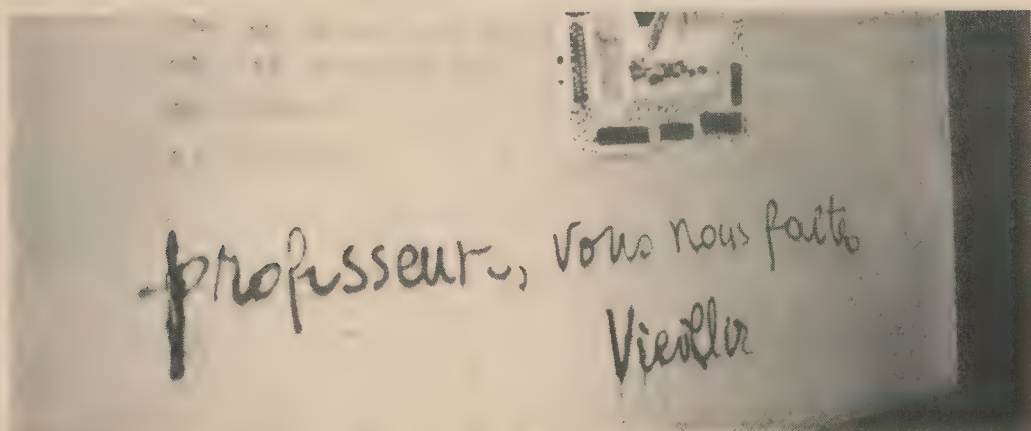 professeurs, vous nous faites
Vieillir